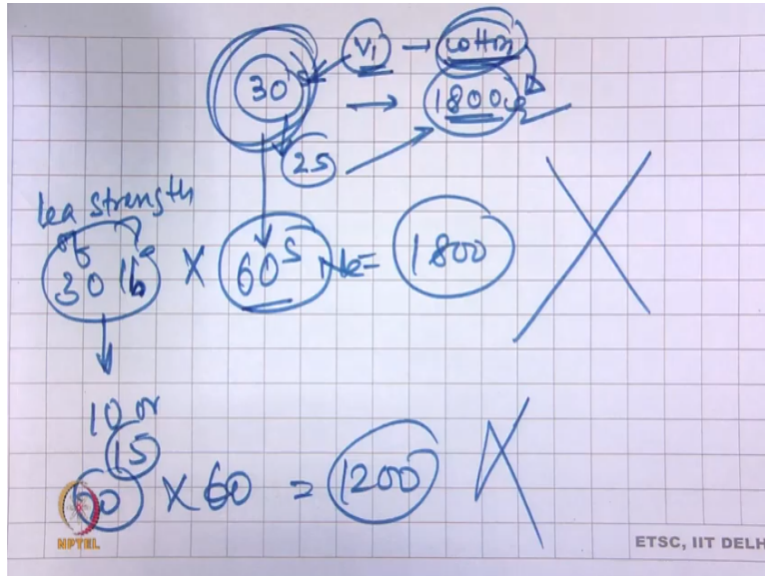 30s V1 → cotton
→ 1800
25
lea strength
of
30 lb X 60s Ne = 1800
10 or
15
X 60 = 1200
NPTEL
ETSC, IIT DELH